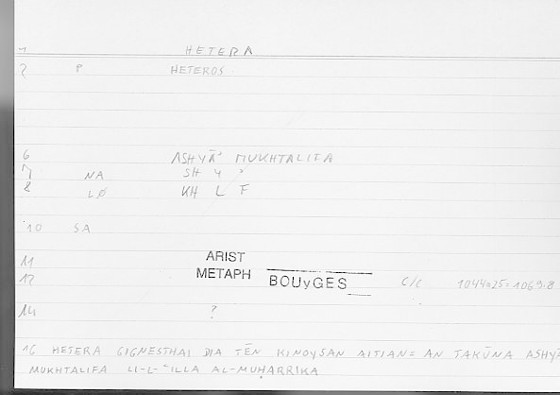 1 HETERA
2 P HETEROS
6 ASHYĀ' MUKHTALIFA
7 NA SH Y '
8 LØ KH L F
10 SA
11 ARIST
12 METAPH BOUyGES C/C 1044A25=1069.8
14 ?
16 HETERA GIGNESTHAI DIA TĒN KINOYSAN AITIAN= AN TAKŪNA ASHYĀ
MUKHTALIFA LI-L-'ILLA AL-MUḤARRIKA